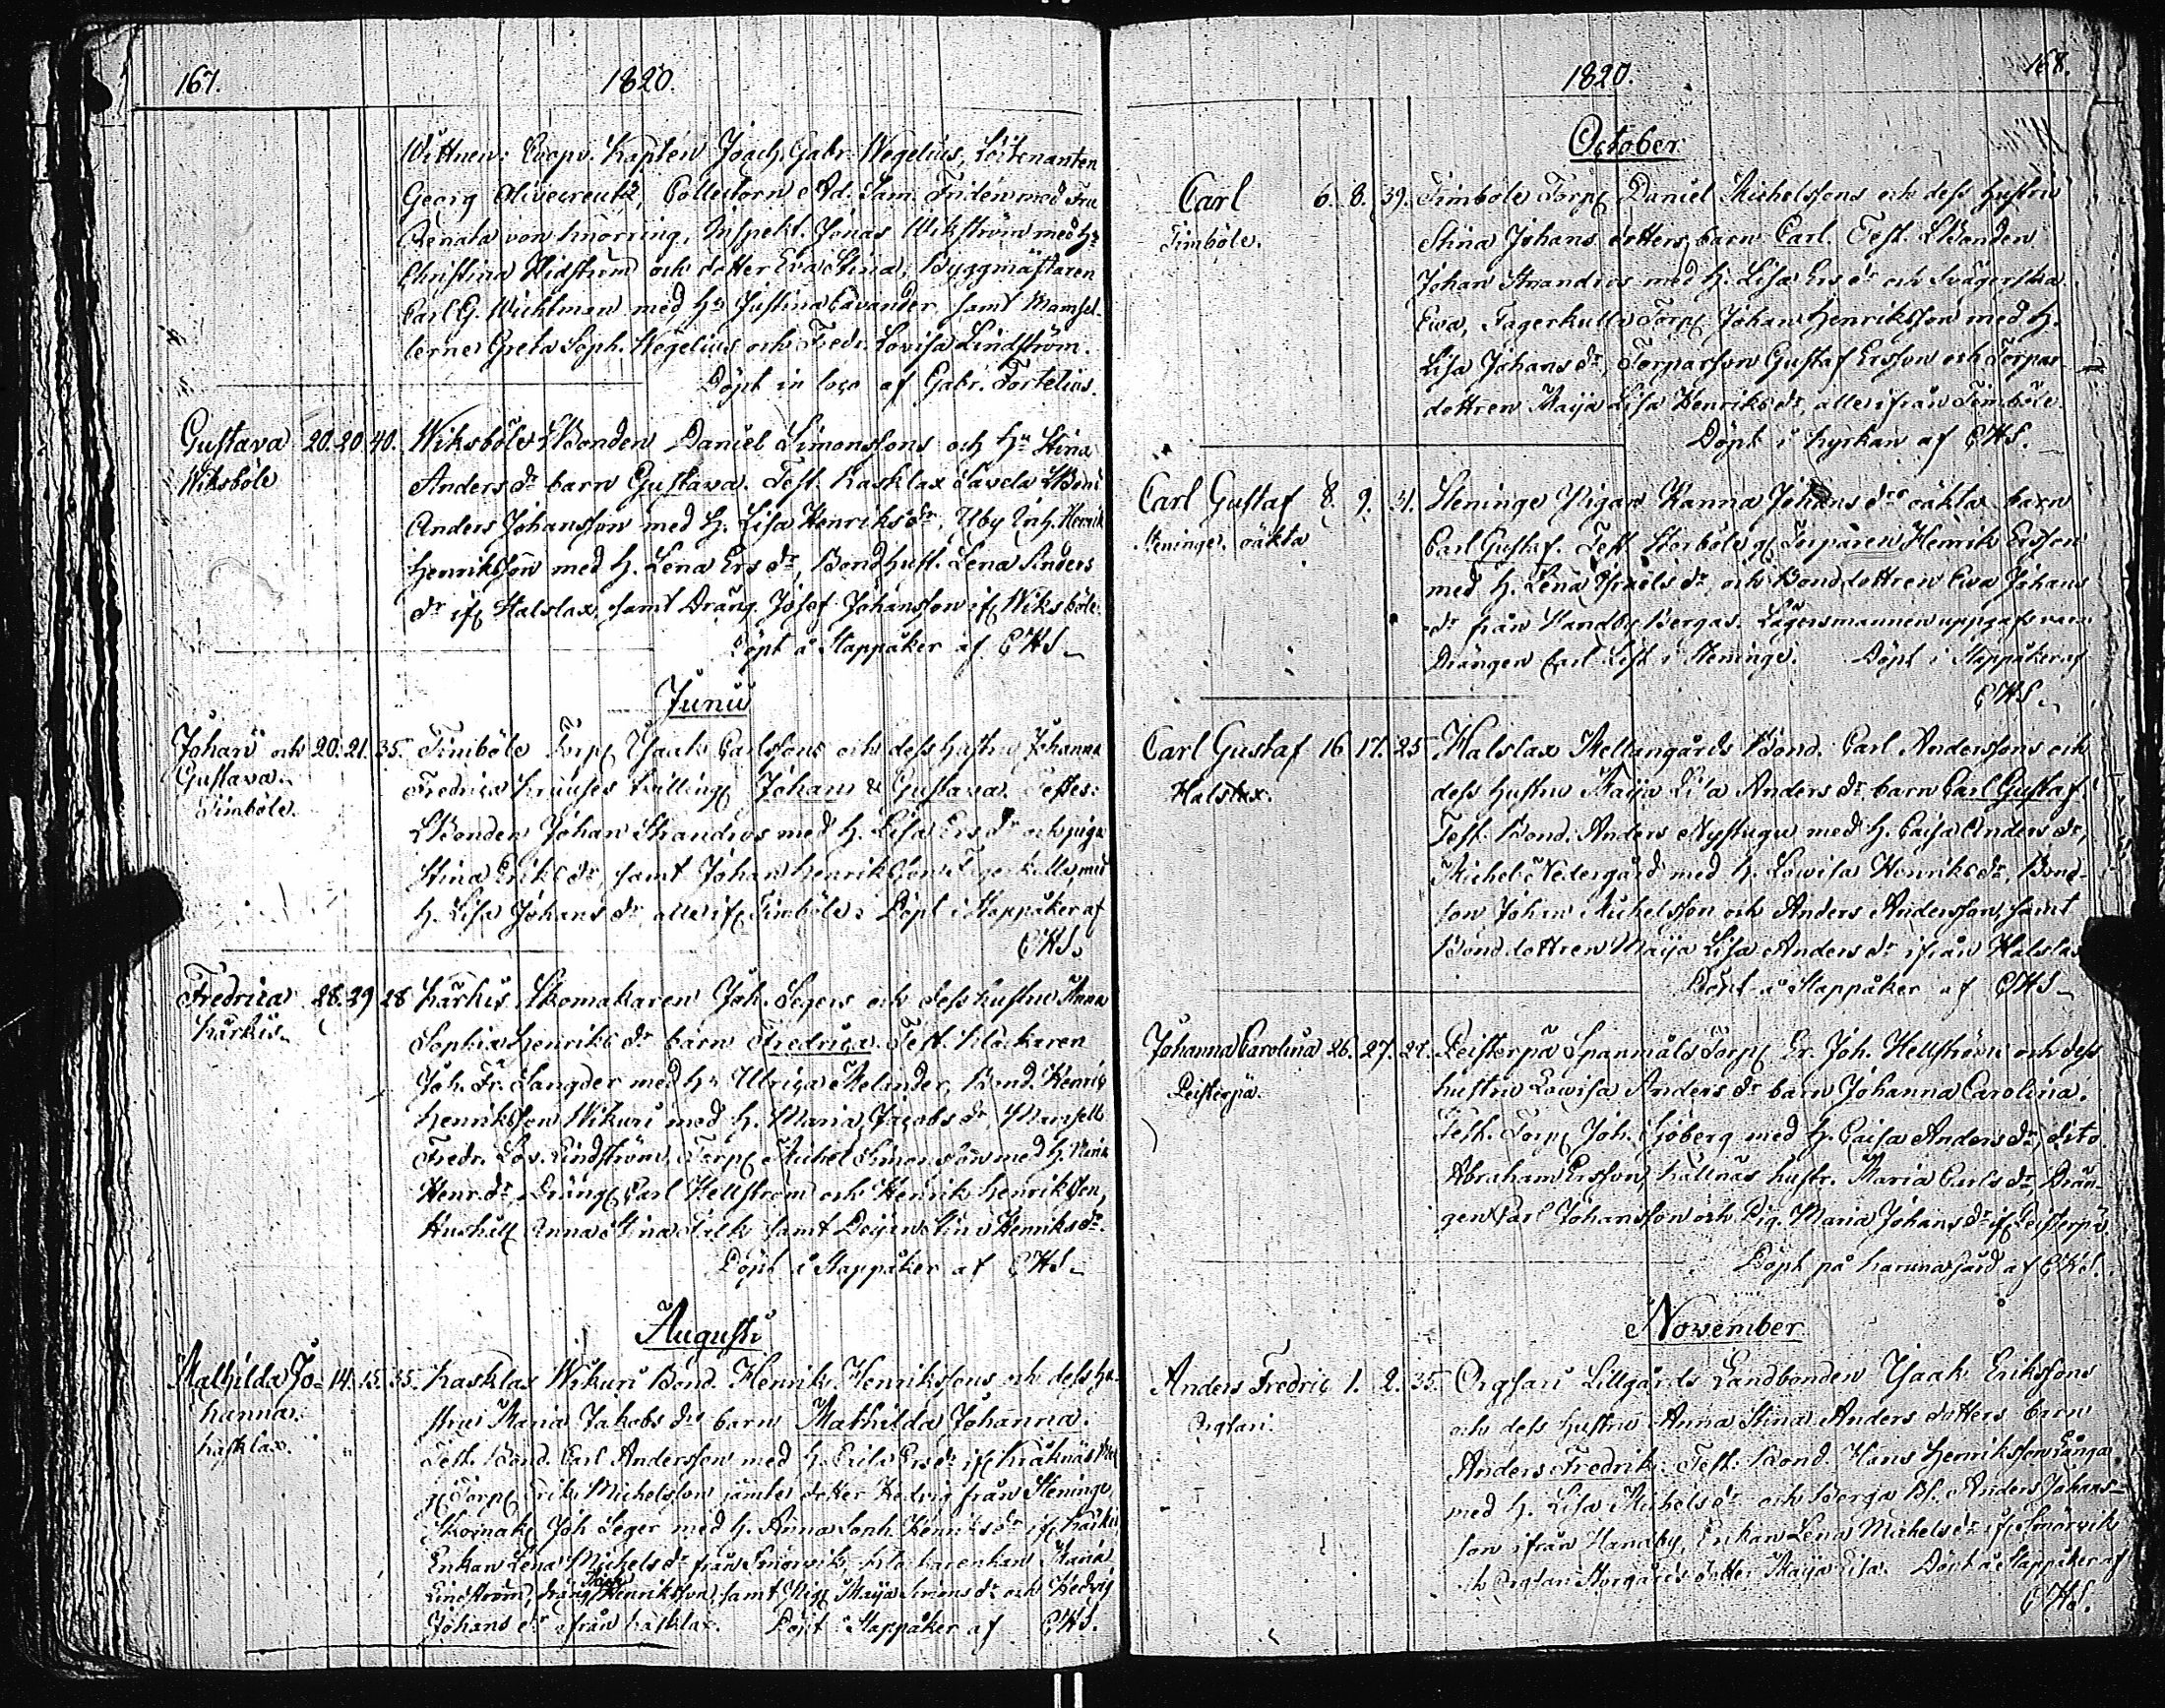 167.
1820.
Wittnen: Capten Joach. Gabr. Wegelius, Löitenanten
Georg Olivecreutz, Collectorn Ad. Sam. Fridén med Fru
Renata von Knorring, Inspekt. Jonas Wikström med Hu
Christina Widström och dotter Eva Stina, Byggmästaren
Carl G. Wichtman med Hu Justina Cavander samt Mamsel-
lerne Greta Soph. Wegelius och Fredr. Lovisa Lindström.
Döpt in loco af Gabr. Fortelius.
Gustava 20. 20. 40. Wiksböle LBonden Daniel Simonssons och Hu Stina
Wiksböle Anders dr barn Gustava. Test. Kasklax Lavela LBond
Anders Johansson med H. Lisa Henriks dr, Uby Inh. Henrik
Henriksson med H. Lena Ers dr, Bondhust. Lena Anders
dr ifr Halslax, samt Dräng. Josef Johansson ifr Wiksböle.
Döpt å Stappåker af CHS
Junii
Johan och 20. 21. 35. Finböle Torp. Isaak Carlssons och dess hustru Johanna
Gustava. Fredrica Krauses tvilling Johan & Gustava. Testes:
Finböle. LBonden Johan Strandros med H. Lisa Ers dr och piga
Stina Eriks dr, samt Johan Henriksson Fagerkulla med
H. Lisa Johans dr alle ifr Finböle. Döpt i Stappåker af
CHS.
Fredrica 28. 29 28 Kärkis Skomakaren Joh. Segers och dess hustru Anna
Kärkis. Sophia Henriks dr barn Fredrica. Test. Klockaren
Joh. Fr. Langder med Hu Ulrica Melander, Bond. Henrik
Henriksson Wikuri med H. Maria Jacobs dr, Mamsell
Fredr. Lov. Lindström, Torp. Michel Simonsson med H. Maria
Henr. dr Dräng. Carl Hellström och Henrik Henriksson,
Hushåll. Anna Stina Falk samt Dejan Stina Henriks dr.
Döpt i Stappåker af CHS
Augusti
Mathilda Jo- 14. 15. 35. Kasklax Wikuri Bond. Henrik Henrikssons och dess hu-
hanna. stru Maria Jakobs dr barn Mathilda Johanna.
Kasklax. Test. Bond. Carl Andersson med H. Ers dr ifr Kräknäs
Torp. Erik Michelsson jämte dotter Hedvig från Steninge,
Skomak. Joh Seger med H. Anna Soph. Henriks dr ifr Kärkis
Enkan Lena Michels dr från Smörvik, Klockarenkan Maria
Lindström, dräng Henriksson, samt Pig. Maja Simons dr och Hedvig
Johans dr ifrån Kasklax. Döpt i Stappåker af CHS.
168.
1820.
October
Carl 6. 8. 39. Finböle Torp. Daniel Michelssons och dess hustru
Finböle. Stina Johans dotters barn Carl. Test. LBonden
Johan Strandros med H. Lisa Ers dr och Svägerska
Eva, Fagerkulla Torp. Johan Henriksson med H.
Lisa Johans dr, Torparson Gustaf Ersson och Torpar-
dottren Maja Lisa Henriks dr, alle ifrån Finböle.
Döpt i kyrkan af CHS.
Carl Gustaf 8. 9. 31. Steninge Pigan Hanna Johans drs oäkta barn
Steninge. oäkta Carl Gustaf. Test. Storböle Torparen Henrik Ersson
med H. Lena Israels dr, och Bonddottren Eva Johans
dr från Handby Bergas. Lägersmannen uppgafs vara
Drängen Carl List i Steninge. Döpt i Stappåker af
CHS.
Carl Gustaf 16 17. 25 Halslax Mellangårds Bond. Carl Anderssons och
Halslax. dess hustru Maja Lisa Anders dr barn Carl Gustaf
Test. Bond. Anders Nystugu med H. Caisa Anders dr,
Michel Nedergård med H. Lovisa Henriks dr, Bond-
son Johan Michelsson och Anders Andersson, samt
Bonddottren Maja Lisa Anders dr ifrån Halslax
Döpt å Stappåker af CHS
Johanna Carolina 26. 27. 27. Leistorpä Spanmåls Torp. Er. Joh. Hellströms och dess
Leistorpä. hustru Lovisa Anders dr barn Johanna Carolina.
Test. Torp. Joh. Sjöberg med H. Caisa Anders dr, dito
Abraham Ersson, Källnäs hustr. Maria Carls dr, Drän-
gen Carl Johansson och Pig. Maria Johans dr ifr Leistorpä.
Döpt på af CHS.
November
Anders Fredric 1. 2. 35. Orgsari Lillgårds Landbonden Isaak Erikssons
Orgsari. och dess hustru Anna Stina Anders dotters barn
Anders Fredrik. Test. Bond. Hans Henriksson Långa
med H. Lisa Michels dr och Berga Bs. Anders Johans-
son ifrån Handby, Enkan Lena Michels dr ifr Smörvik
och Orgsari Storgårds dotter Maja Lisa. Döpt å Stappåker af
CHS.